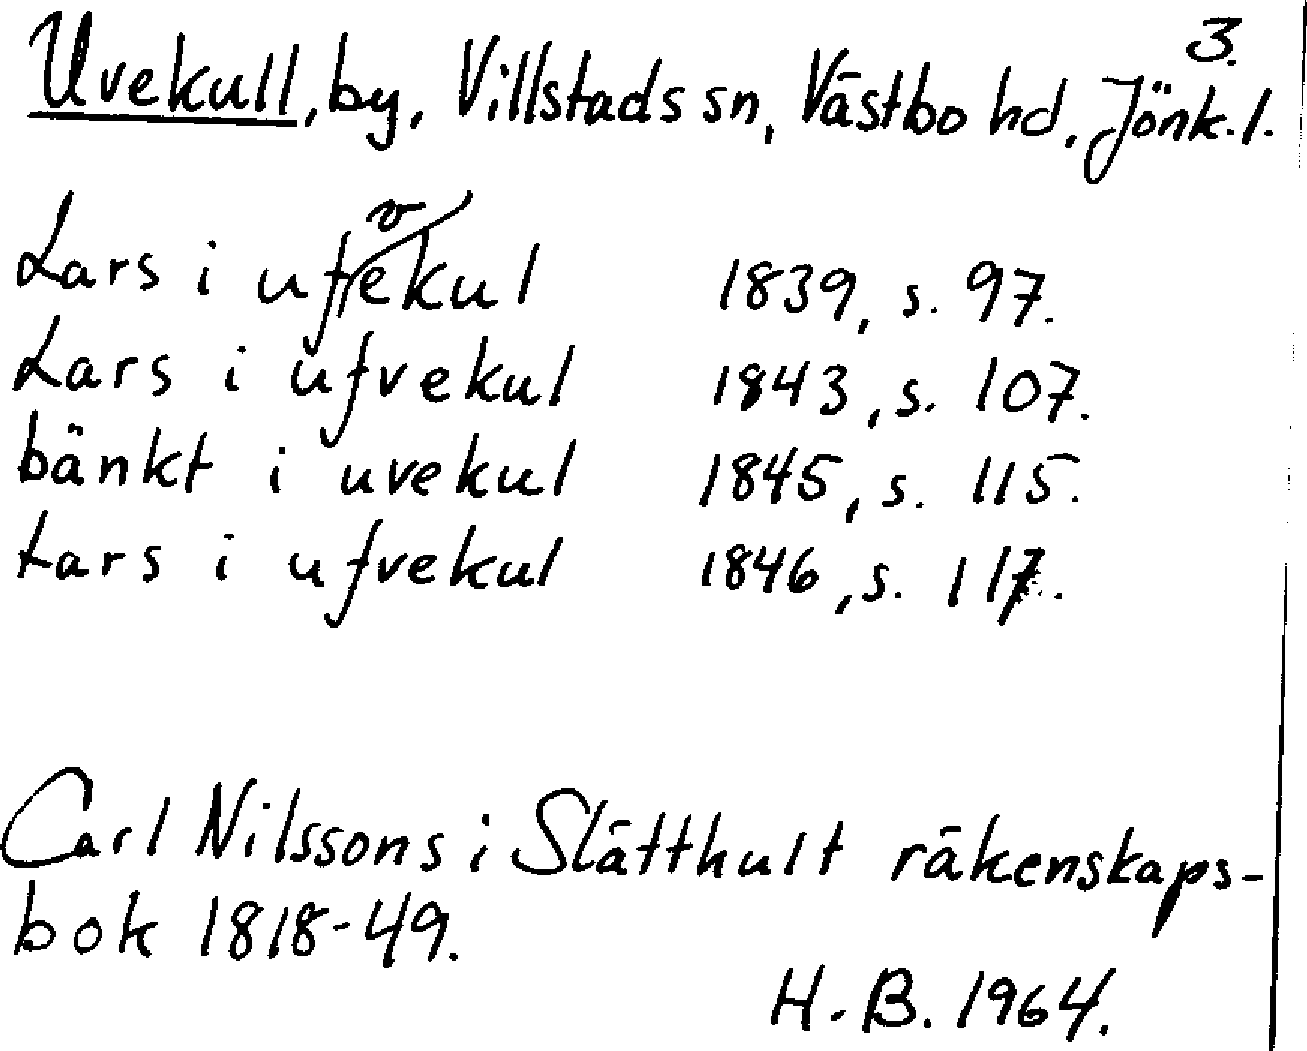 3.
Uvekull, by, Villstads sn, Västbo hd, Jönk. l.
Lars i ufvekul 1839, s. 97.
Lars i ufvekul 1843, s. 107.
bänkt i uvekul 1845, s. 115.
Lars i ufvekul 1846, s. 117.
Carl Nilssons i Slätthult räkenskaps-
bok 1818-49.
H. B. 1964.